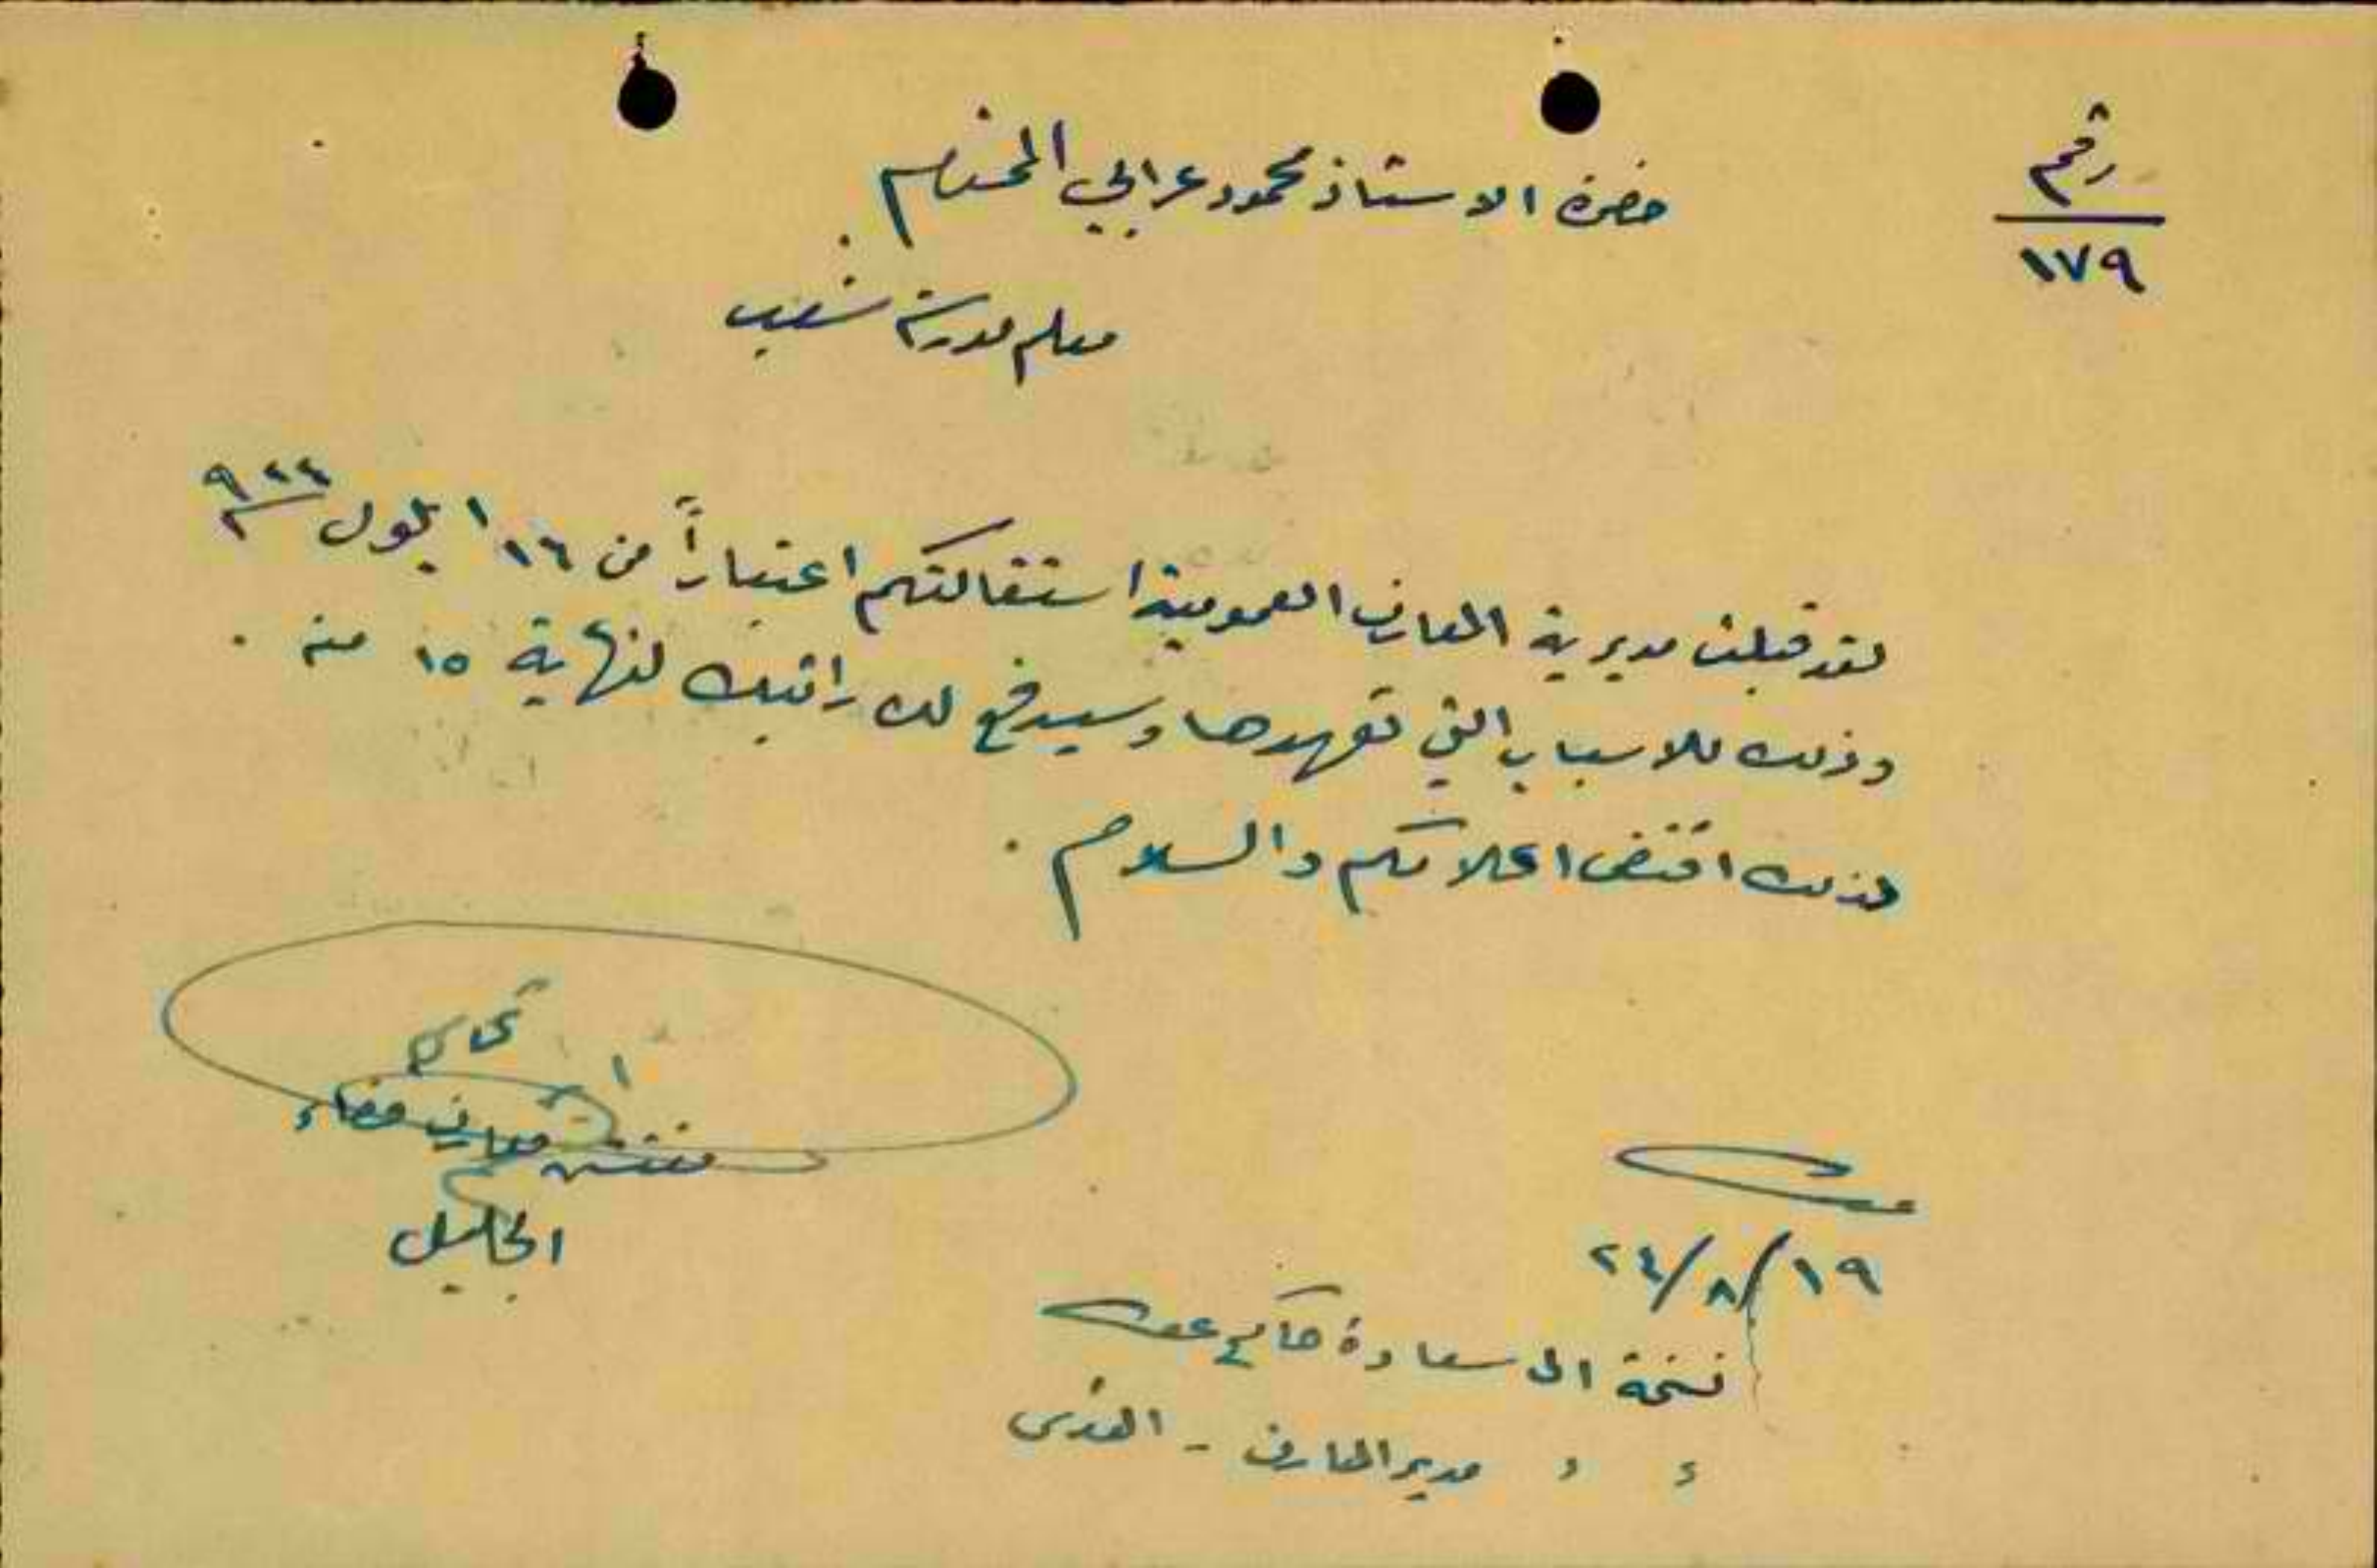 رقم
١٧٩
حضرة الاستاذ محمود عرابي المحترم
معلم مدرسة شعب
لقد قبلت مديرية المعارف العمومية استقالتكم اعتباراً من ١٦ ايلول ٩٢٤
وذلك للاسباب التي تعهدها وسيدفع لك راتبك لنهاية ١٥ منه .
لذلك اقتضى اعلامكم والسلام .
مفتش معارف قضاء
الجليل
عكا
١٩/٨/٢٤
نسخة الى سعادة حاكم عكا
" " مدير المعارف - القدس